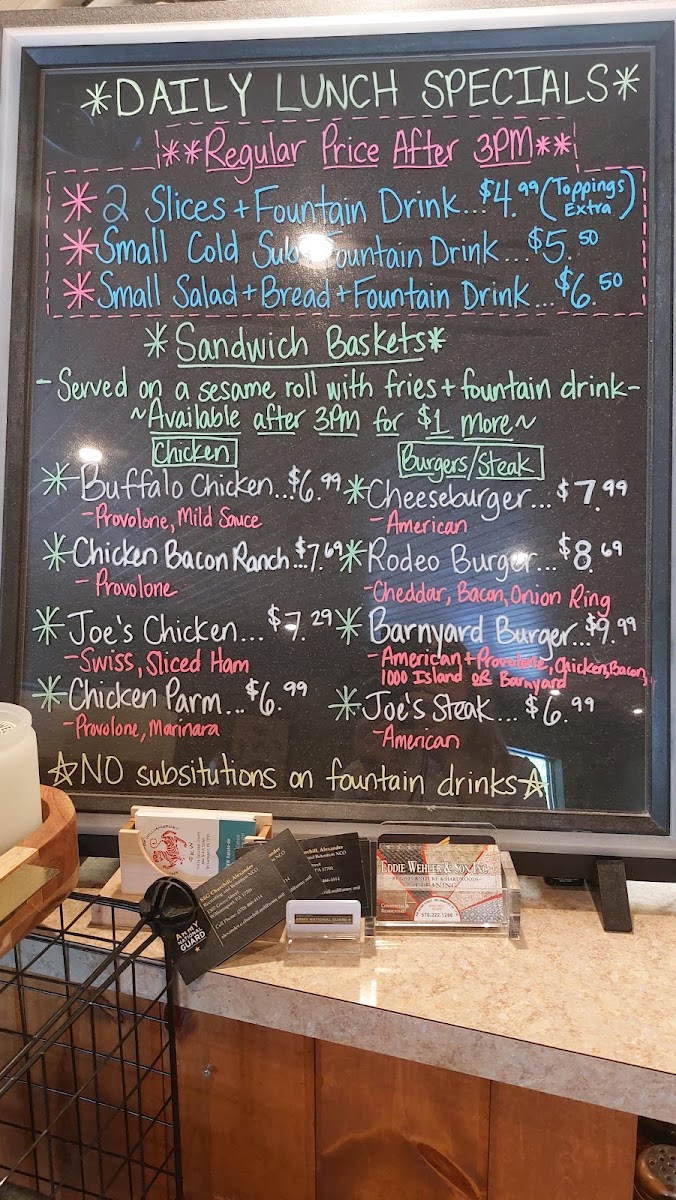 *DAILY LUNCH SPECIALS*
**Regular Price After 3PM**
* 2 Slices + Fountain Drink...$4.99 (Toppings Extra)
* Small Cold Sub + Fountain Drink...$5.50
* Small Salad + Bread + Fountain Drink...$6.50
*Sandwich Baskets*
- Served on a sesame roll with fries + fountain drink -
~Available after 3PM for $1 more~
Chicken
* Buffalo Chicken...$6.99
- Provolone, Mild Sauce
* Chicken Bacon Ranch...$7.69
- Provolone
* Joe's Chicken...$7.29
- Swiss, Sliced Ham
* Chicken Parm...$6.99
- Provolone, Marinara
Burgers/Steak
* Cheeseburger...$7.99
- American
* Rodeo Burger...$8.69
- Cheddar, Bacon, Onion Ring
* Barnyard Burger...$9.99
- American + Provolone, Chicken, Bacon,
1000 Island OR Barnyard
* Joe's Steak...$6.99
- American
☆NO subsitutions on fountain drinks☆
SSG Churchill, Alexander
Recruiting and Retention NCO
Williamsport, PA 17701
ARMY
NATIONAL
GUARD
ARMY NATIONAL GUARD
EDDIE WEHLER & SON INC.
CLEANING